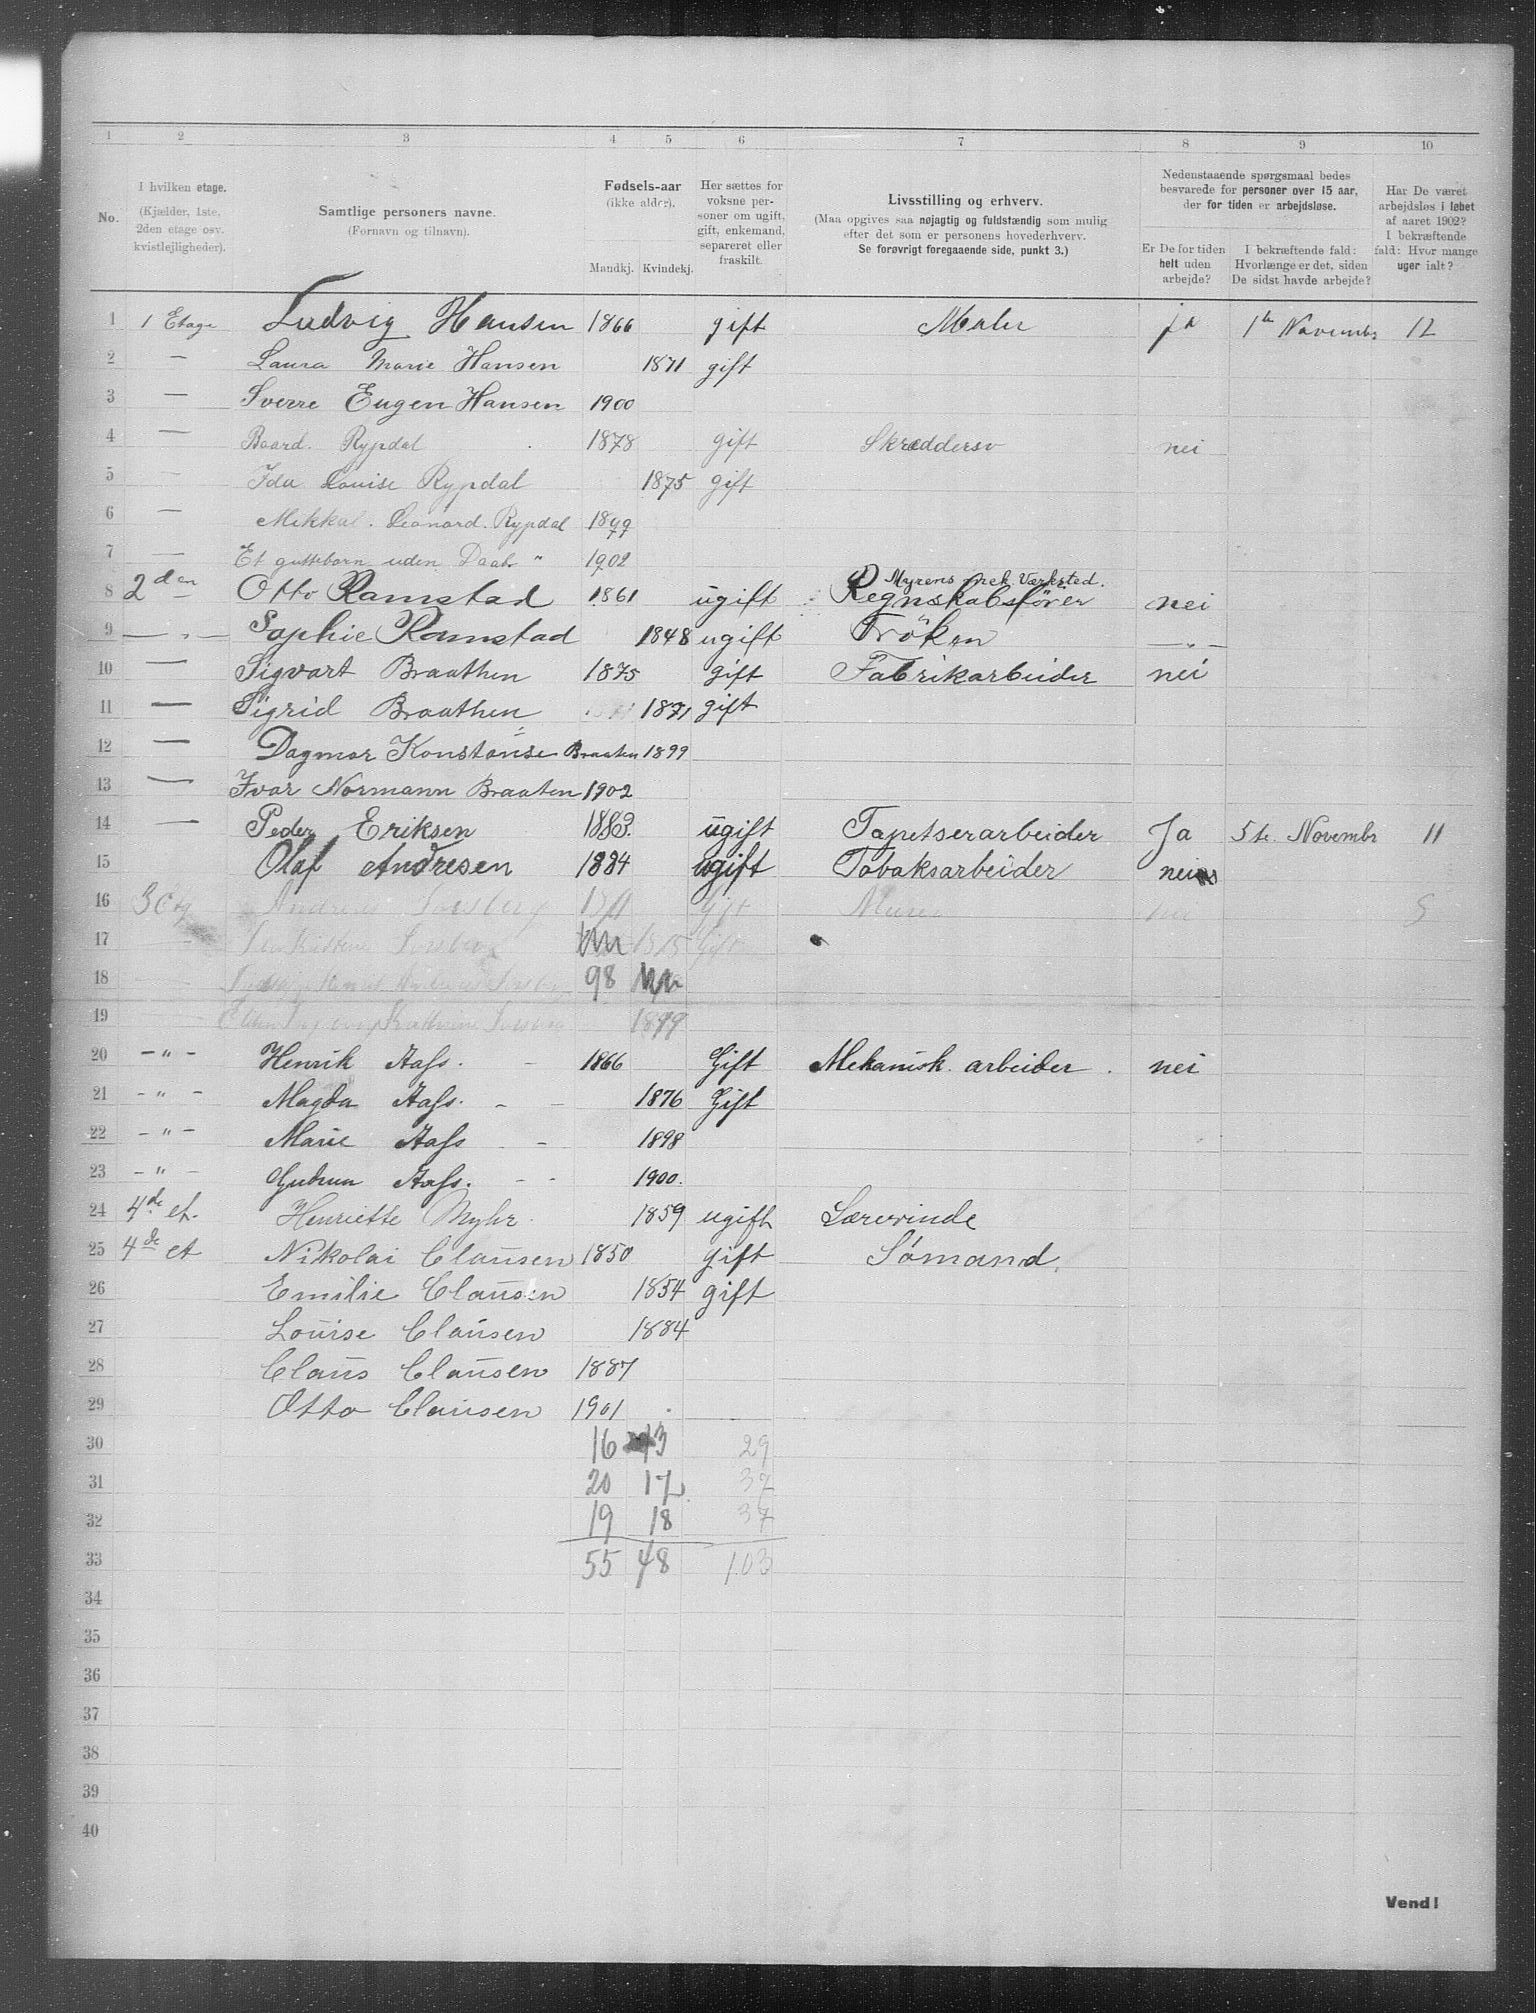 1 2 3 4 5 6 7 8 9 10
No.
I hvilken etage.
(Kjælder, 1ste,
2den etage osv.
kvistlejligheder).
Samtlige personers navne.
(Fornavn og tilnavn).
Fødsels-aar
(ikke alder).
Mandkj. Kvindekj.
Her sættes for
voksne per-
soner om ugift,
gift, enkemand,
separeret eller
fraskilt.
Livsstilling og erhverv.
(Maa opgives saa nøjagtig og fuldstændig som mulig
efter det som er personens hovederhverv.
Se forøvrigt foregaaende side, punkt 3.)
Nedenstaaende spørgsmaal bedes
besvarede for personer over 15 aar,
der for tiden er arbejdsløse.
Er De for tiden
helt uden
arbejde?
I bekræftende fald:
Hvorlænge er det, siden
De sidst havde arbejde?
Har De været
arbejdsløs i løbet
af aaret 1902?
I bekræftende
fald: Hvor mange
uger ialt?
1 1 Etage Ludvig Hansen 1866 gift Maler ja 1te Novembr 12
2 — Laura Marie Hansen 1871 gift
3 — Sverre Eugen Hansen 1900
4 — Baard. Rypdal 1878 gift Skræddersv nei
5 — Ida Louise Rypdal 1875 gift
6 — Mikkal. Leonard. Rypdal 1899
7 — Et guttebarn uden Daab " 1902
Myrens mek Værksted.
8 2den Otto Ramstad 1861 ugift Regnskabsfører nei
9 — " — Sophie Ramstad 1848 ugift Frøken — " —
10 — Sigvart Braathen 1875 gift Fabrikarbeider nei
11 — Sigrid Braathen 1871 gift
12 — Dagmar Konstanse Braaten 1899
13 — Ivar Normann Braaten 1902
14 — Peder Eriksen 1883. ugift Tapetserarbeider Ja 5te. Novembr 11
15 Olaf Andresen 1884 ugift Tobaksarbeider nei
16 3 Etg Andreas gift nei
17 gift
18 98
19 1899
20 — " — Henrik Aass. 1866 Gift Mekanisk. arbeider. nei
21 — " — Magda Aass. 1876 Gift
22 — " — Marie Aass 1898
23 — " — Gudrun Aass. 1900.
24 4de et. Henriette Myhr 1859 ugift Lærerinde
25 4de et Nikolai Clausen 1850 gift Sömand.
26 Emilie Clausen 1854 gift
27 Louise Clausen 1884
28 Claus Clausen 1887
29 Otto Clausen 1901
30 16 13 29
31 20 17 37
32 19 18 37
33 55 48 103
34
35
36
37
38
39
40
Vend!